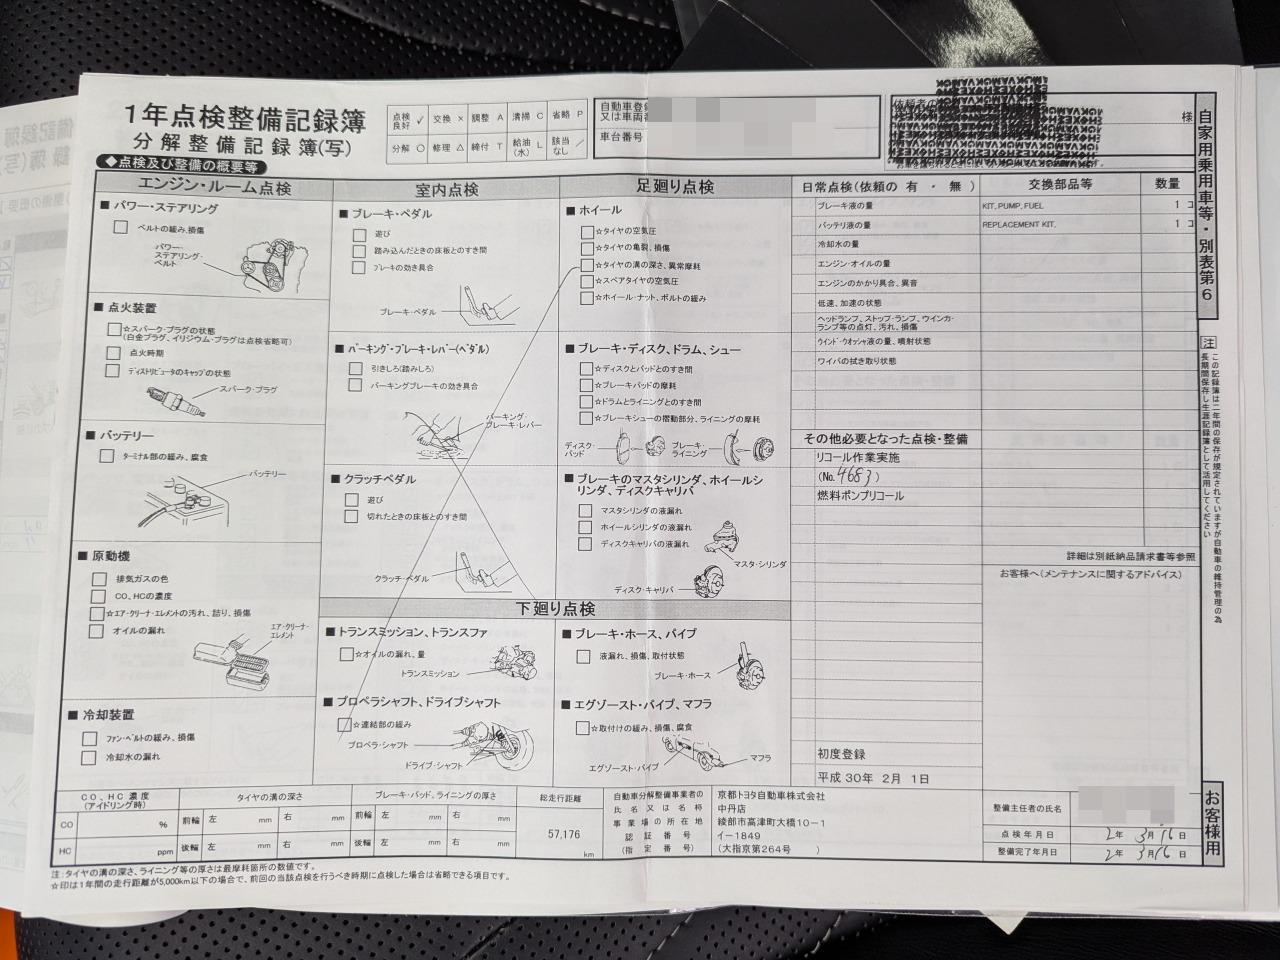 1年点検整備記録簿
分解整備記録簿(写)
◆点検及び整備の概要等
点検良好 ✓ 交換 × 調整 A 清掃 C 省略 P
分解 ○ 修理 △ 締付 T 給油(水) L 該当なし ／
自動車登録
又は車両番
車台番号
依頼者の
様
自家用乗用車等・別表第6
注 この記録簿は二年間の保存が規定されていますが自動車の維持管理の為
長期間保存し生涯記録簿として活用してください
お客様用
エンジン・ルーム点検
■ パワー・ステアリング
ベルトの緩み､損傷
パワー・
ステアリング・
ベルト
■ 点火装置
☆スパーク・プラグの状態
(白金プラグ、イリジウム・プラグは点検省略可)
点火時期
ディストリビュータのキャップの状態
スパーク・プラグ
■ バッテリー
ターミナル部の緩み､腐食
バッテリー
■ 原動機
排気ガスの色
CO､HCの濃度
☆エア・クリーナ・エレメントの汚れ､詰り､損傷
オイルの漏れ
エア・クリーナ・
エレメント
■ 冷却装置
ファン・ベルトの緩み､損傷
冷却水の漏れ
室内点検
■ ブレーキ・ペダル
遊び
踏み込んだときの床板とのすき間
ブレーキの効き具合
ブレーキ・ペダル
■ パーキング・ブレーキ・レバー(ペダル)
引きしろ(踏みしろ)
パーキングブレーキの効き具合
パーキング・
ブレーキ・レバー
■ クラッチペダル
遊び
切れたときの床板とのすき間
クラッチ・ペダル
足廻り点検
■ ホイール
☆タイヤの空気圧
☆タイヤの亀裂､損傷
☆タイヤの溝の深さ､異常摩耗
☆スペアタイヤの空気圧
☆ホイール・ナット､ボルトの緩み
■ ブレーキ・ディスク､ドラム､シュー
☆ディスクとパッドとのすき間
☆ブレーキパッドの摩耗
☆ドラムとライニングとのすき間
☆ブレーキシューの摺動部分､ライニングの摩耗
ディスク・
パッド
ブレーキ・
ライニング
■ ブレーキのマスタシリンダ､ホイールシ
リンダ､ディスクキャリパ
マスタシリンダの液漏れ
ホイールシリンダの液漏れ
ディスクキャリパの液漏れ
マスタ・シリンダ
ディスク・キャリパ
下廻り点検
■ トランスミッション､トランスファ
☆オイルの漏れ､量
トランスミッション
■ プロペラシャフト､ドライブシャフト
☆連結部の緩み
プロペラ・シャフト
ドライブ・シャフト
■ ブレーキ・ホース､パイプ
液漏れ､損傷､取付状態
ブレーキ・ホース
■ エグゾースト・パイプ､マフラ
☆取付けの緩み､損傷､腐食
エグゾースト・パイプ
マフラ
日常点検(依頼の 有 ・ 無 )
ブレーキ液の量
バッテリ液の量
冷却水の量
エンジン・オイルの量
エンジンのかかり具合､異音
低速､加速の状態
ヘッドランプ､ストップ・ランプ､ウインカ・
ランプ等の点灯､汚れ､損傷
ウインド・ウオッシャ液の量､噴射状態
ワイパの拭き取り状態
その他必要となった点検・整備
リコール作業実施
(No. 4683 )
燃料ポンプリコール
初度登録
平成 30年 2月 1日
交換部品等 数量
KIT, PUMP, FUEL 1 コ
REPLACEMENT KIT, 1 コ
詳細は別紙納品請求書等参照
お客様へ(メンテナンスに関するアドバイス)
CO､HC 濃度
(アイドリング時)
CO %
HC ppm
タイヤの溝の深さ
前輪 左 mm 右 mm
後輪 左 mm 右 mm
ブレーキ・パッド､ライニングの厚さ
前輪 左 mm 右 mm
後輪 左 mm 右 mm
総走行距離
57,176
km
自動車分解整備事業者の
氏名又は名称
事業場の所在地
認証番号
(指定番号)
京都トヨタ自動車株式会社
中丹店
綾部市高津町大橋10-1
イ-1849
(大指京第264号 )
整備主任者の氏名
点検年月日 2年 3月16日
整備完了年月日 2年 3月16日
注:タイヤの溝の深さ､ライニング等の厚さは最摩耗箇所の数値です。
☆印は1年間の走行距離が5,000km以下の場合で､前回の当該点検を行うべき時期に点検した場合は省略できる項目です。